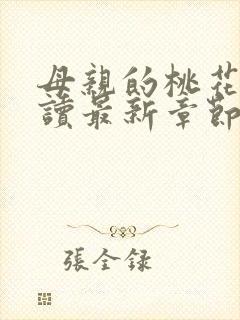 母親的桃花
讀最新章節
張全録